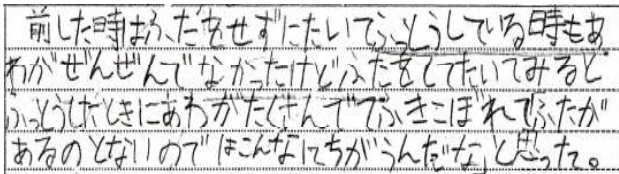 前した時はふたをせずにたいてふっとうしている時もあ
わがぜんぜんでなかったけどふたをしてたいてみると
ふっとうしたときにあわがたくさんでてふきこぼれてふたが
あるのとないのではこんなにちがうんだな」と思った。